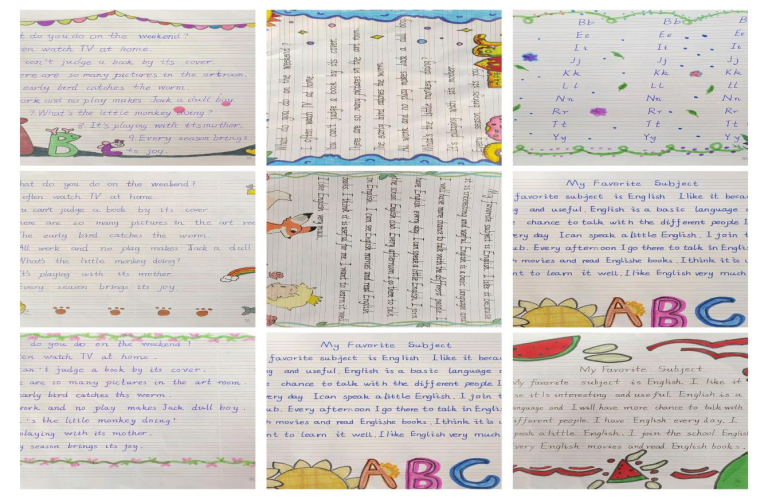 t do you do on the weekend?
en watch TV at home.
on't judge a book by its cover.
ere are so many pictures in the artroom.
early bird catches the worm.
ork and no play makes Jack a dull boy
? What's the little monkey doing?
? It's playing with its mother.
9. Every season brings
its joy.
A B C
Bb Bb B
Ee Ee E
Ii Ii I
Jj Jj J
Kk Kk K
Ll Ll L
Nn Nn N
Rr Rr R
Tt Tt T
Yy Yy Y
hat do you do on the weekend?
often watch TV at home.
u can't judge a book by its cover
ere are so many pictures in the art
he early bird catches the worm.
All work and no play makes Jack a dull
What's the little monkey doing?
t's playing with its mother.
very season brings its joy
My favorite subject is English. I like it because
it is interesting and useful. English is a basic language and
I will have more chance to talk with the different people. I
have English every day. I can speak a little English. I join
the school English club. Every afternoon I go there to talk
in English. I can see English movies and read English
books. I think it is useful for me. I want to learn it well.
I like English very much.
My Favorite Subject
favorite subject is English I like it becau
g and useful. English is a basic language
chance to talk with the different people I
ery day I can speak a little English. I join t
ub. Every afternoon I go there to talk in Englis
h movies and read Englishe books. I think it is u
nt to learn it well. I like English very much
A B C
do you do on the weekend?
en watch TV at home.
an't judge a book by its cover.
are so many pictures in the art room.
early bird catches ths worm.
ork and no play makes Jack dull boy.
's the little monkey doing?
playing with its mother.
y season brings its joy.
My Favorite Subject
favorite subject is English I like it becau
g and useful. English is a basic language
chance to talk with the different people I
ery day I can speak a little English. I join t
ub. Every afternoon I go there to talk in Englis
h movies and read Englishe books. I think it is u
nt to learn it well. I like English very much
A B C
My Favorite Subject
y favorite subject is English. I like it
se it is interesting and useful. English is a
anguage and I will have more chance to talk with
ifferent people. I have English every day. I
peak a little English. I join the school Englis
very English movies and read English books.